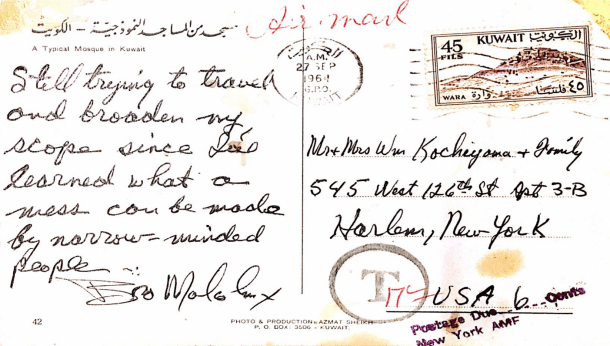 مسجد من المساجد النموذجية - الكويت
A Typical Mosque in Kuwait
Air mail
Still trying to travel
and broaden my
scope since I've
learned what a
mess can be made
by narrow-minded
people..
Bro Malcolm X
42
PHOTO & PRODUCTION: AZMAT SHEIKH
P. O. BOX: 3506 - KUWAIT.
الكويت
A.M.
27 SEP
1964
G.P.O.
KUWAIT
45
FILS
KUWAIT الكويت
WARA وارة
٤٥ فلسا
Mr + Mrs Wm Kochiyama + Family
545 West 126th St Apt 3-B
Harlem, New York
USA
T
6 Cents
Postage Due
New York AMF